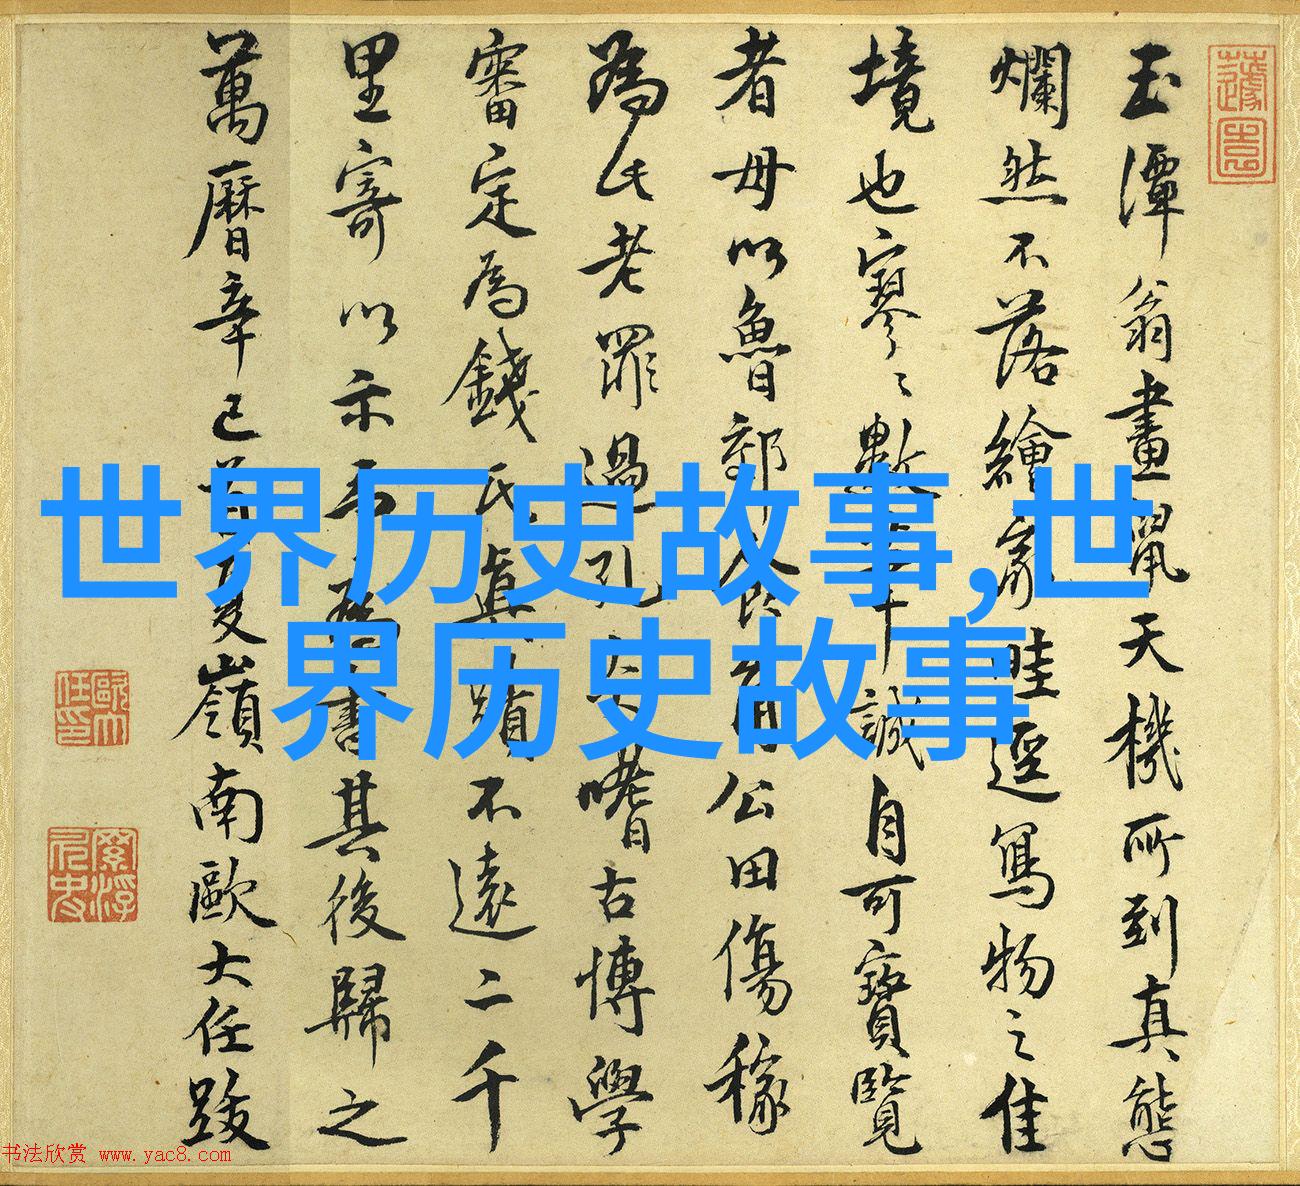 玉潭翁畫鼠天機所到真態
爛然不落繪家畦逕寫物之佳
境也寥〻數 誠自可寶覽
者毋以魯郭 公田傷稼
為氏老罪過孔 嗜古博學
審定為錢氏真蹟不遠二千
里寄以示 書其後歸之
萬曆辛巳 夏嶺南歐大任跋
世界历史故事,世
界历史故事
书法欣赏 www.yac8.com